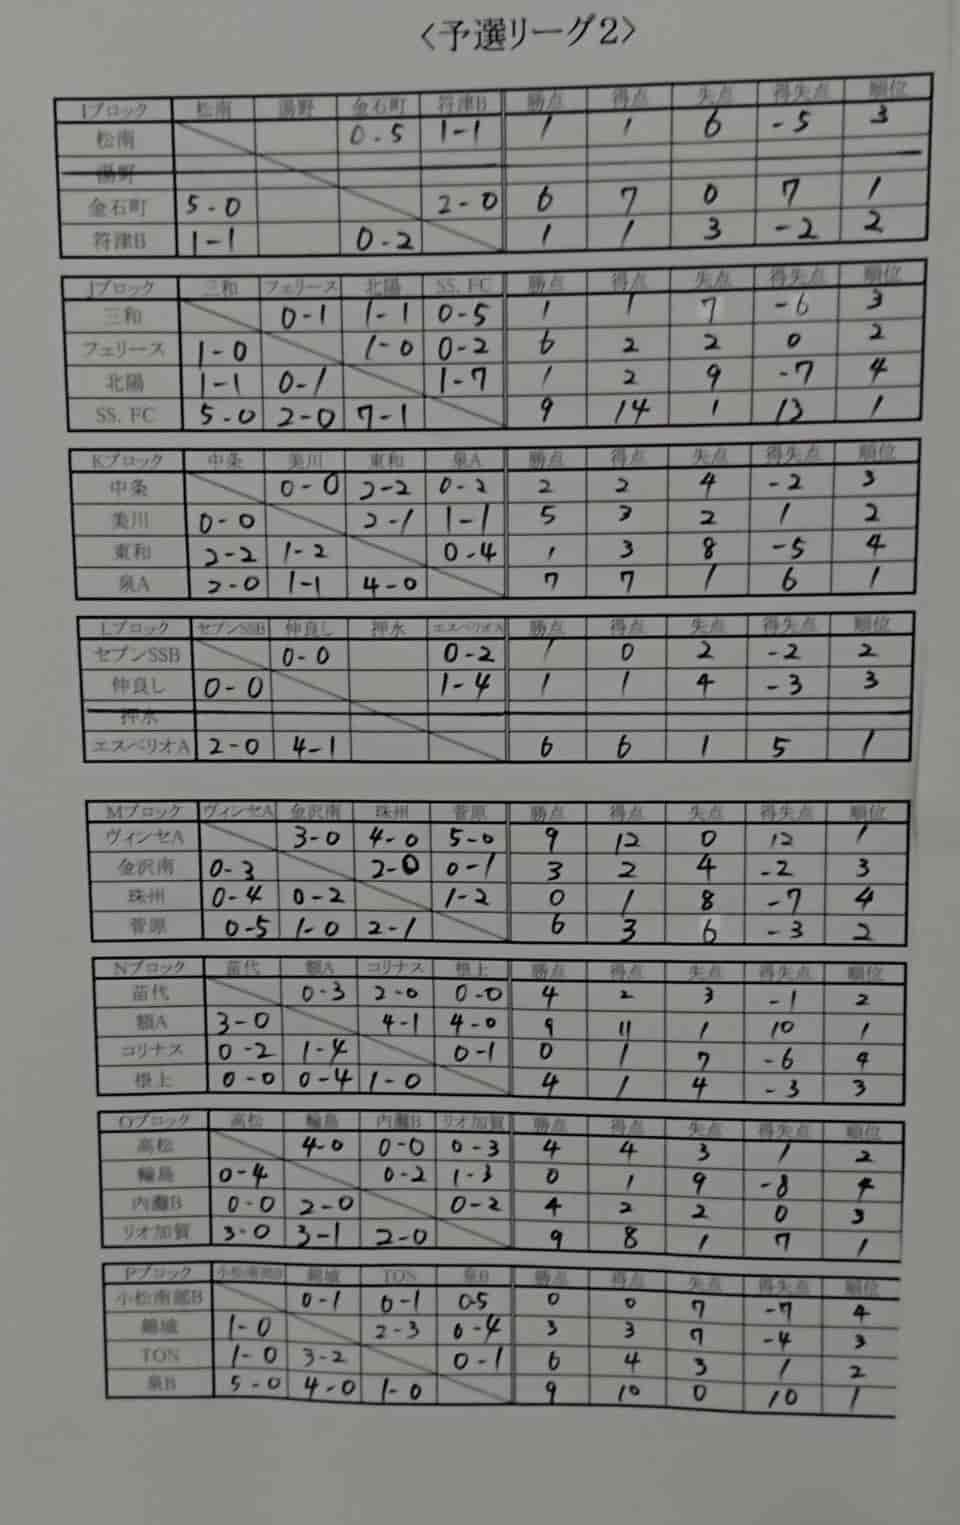 〈予選リーグ2〉
Iブロック 松南 湯野 金石町 符津B 勝点 得点 失点 得失点 順位
松南 0-5 1-1 1 1 6 -5 3
湯野
金石町 5-0 2-0 6 7 0 7 1
符津B 1-1 0-2 1 1 3 -2 2
Jブロック 三和 フェリース 北陽 SS.FC 勝点 得点 失点 得失点 順位
三和 0-1 1-1 0-5 1 1 7 -6 3
フェリース 1-0 1-0 0-2 6 2 2 0 2
北陽 1-1 0-1 1-7 1 2 9 -7 4
SS.FC 5-0 2-0 7-1 9 14 1 13 1
Kブロック 中条 美川 東和 泉A 勝点 得点 失点 得失点 順位
中条 0-0 2-2 0-2 2 2 4 -2 3
美川 0-0 2-1 1-1 5 3 2 1 2
東和 2-2 1-2 0-4 1 3 8 -5 4
泉A 2-0 1-1 4-0 7 7 1 6 1
Lブロック セブンSSB 仲良し 押水 エスペリオA 勝点 得点 失点 得失点 順位
セブンSSB 0-0 0-2 1 0 2 -2 2
仲良し 0-0 1-4 1 1 4 -3 3
押水
エスペリオA 2-0 4-1 6 6 1 5 1
Mブロック ヴィンセA 金沢南 珠州 菅原 勝点 得点 失点 得失点 順位
ヴィンセA 3-0 4-0 5-0 9 12 0 12 1
金沢南 0-3 2-0 0-1 3 2 4 -2 3
珠州 0-4 0-2 1-2 0 1 8 -7 4
菅原 0-5 1-0 2-1 6 3 6 -3 2
Nブロック 苗代 額A コリナス 根上 勝点 得点 失点 得失点 順位
苗代 0-3 2-0 0-0 4 2 3 -1 2
額A 3-0 4-1 4-0 9 11 1 10 1
コリナス 0-2 1-4 0-1 0 1 7 -6 4
根上 0-0 0-4 1-0 4 1 4 -3 3
Oブロック 高松 輪島 内灘B リオ加賀 勝点 得点 失点 得失点 順位
高松 4-0 0-0 0-3 4 4 3 1 2
輪島 0-4 0-2 1-3 0 1 9 -8 4
内灘B 0-0 2-0 0-2 4 2 2 0 3
リオ加賀 3-0 3-1 2-0 9 8 1 7 1
Pブロック 小松南部B 鶴城 TON 泉B 勝点 得点 失点 得失点 順位
小松南部B 0-1 0-1 0-5 0 0 7 -7 4
鶴城 1-0 2-3 0-4 3 3 7 -4 3
TON 1-0 3-2 0-1 6 4 3 1 2
泉B 5-0 4-0 1-0 9 10 0 10 1